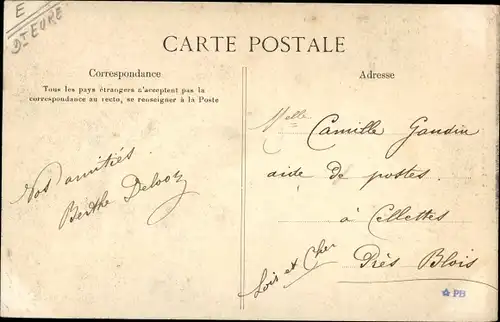 E
DT EURE
CARTE POSTALE
Correspondance
Tous les pays étrangers n'acceptent pas la
correspondance au recto, se renseigner à la Poste
Vos amitiés
Berthe
Adresse
Melle
Camille Gaudin
aide de postes
à Cellettes
Près Blois
Loir et Cher
PB